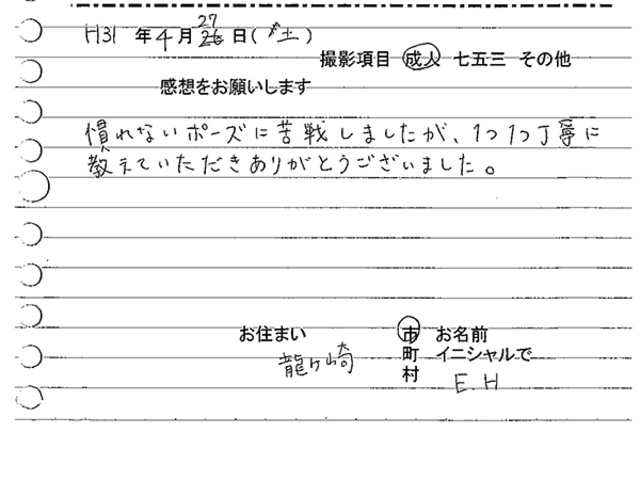 H31 年 4月 27 日(土)
撮影項目 成人 七五三 その他
感想をお願いします
慣れないポーズに苦戦しましたが、1つ1つ丁寧に
教えていただきありがとうございました。
お住まい 市 お名前
龍ヶ崎 町 イニシャルで
村 E.H